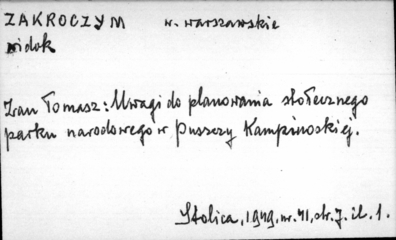 ZAKROCZYM w. warszawskie
widok
Zan Tomasz: Uwagi do planowania stołecznego
parku narodowego w Puszczy Kampinoskiej.
Stolica, 1949, nr. 41, str. 7. il. 1.